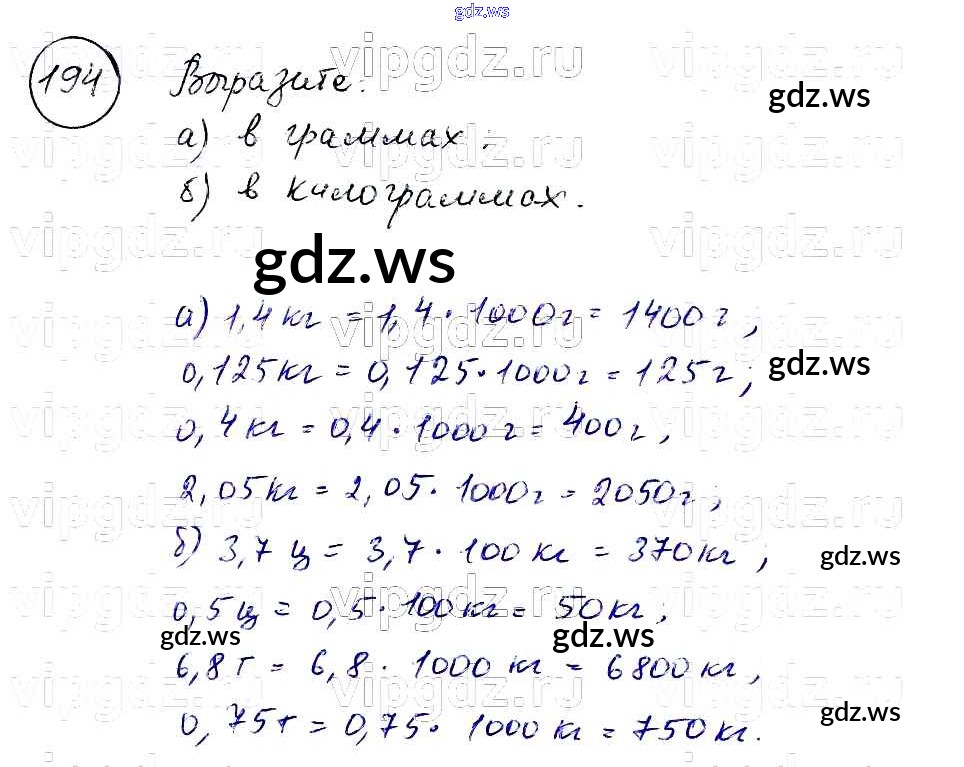 gdz.ws
194 Выразите:
а) в граммах;
б) в килограммах.
gdz.ws
gdz.ws
а) 1,4 кг = 1,4 · 1000 г = 1400 г,
0,125 кг = 0,125 · 1000 г = 125 г;
gdz.ws
0,4 кг = 0,4 · 1000 г = 400 г,
2,05 кг = 2,05 · 1000 г = 2050 г;
б) 3,7 ц = 3,7 · 100 кг = 370 кг,
gdz.ws
0,5 ц = 0,5 · 100 кг = 50 кг,
gdz.ws
gdz.ws
6,8 т = 6,8 · 1000 кг = 6800 кг,
0,75 т = 0,75 · 1000 кг = 750 кг.
gdz.ws
vipgdz.ru